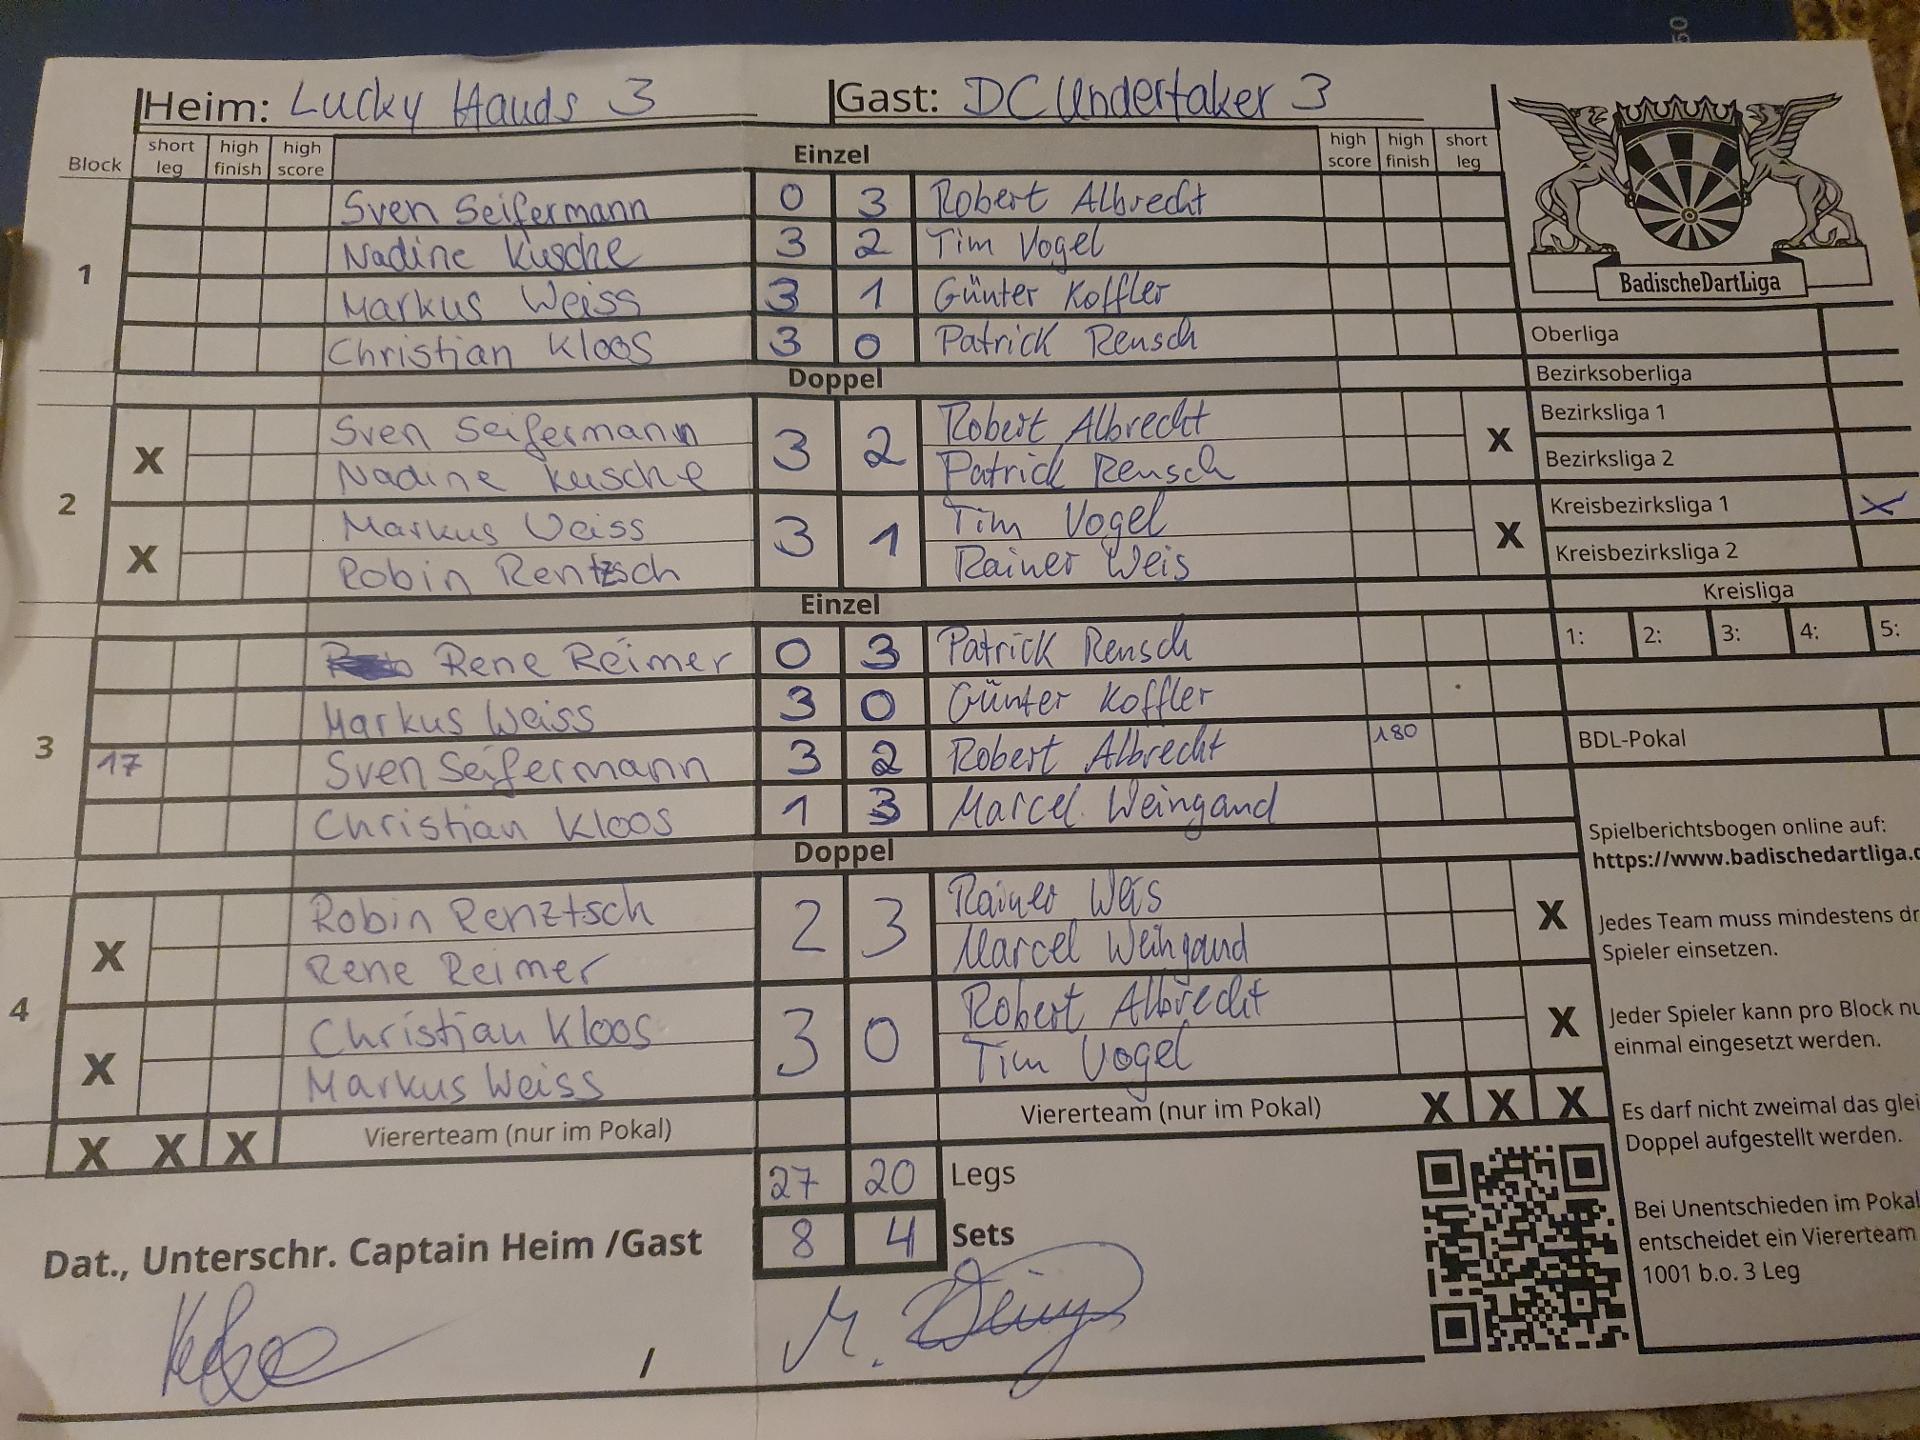 50
Heim: Lucky Hands 3 Gast: DC Undertaker 3
Block short leg high finish high score Einzel high score high finish short leg
1
Sven Seifermann 0 3 Robert Albrecht
Nadine Kusche 3 2 Tim Vogel
Markus Weiss 3 1 Günter Koffler
Christian Kloos 3 0 Patrick Rensch
Doppel
2
X Sven Seifermann 3 2 Robert Albrecht X
Nadine Kusche Patrick Rensch
X Markus Weiss 3 1 Tim Vogel X
Robin Rentzsch Rainer Weis
Einzel
3
Rene Reimer 0 3 Patrick Rensch
Markus Weiss 3 0 Günter Koffler
17 Sven Seifermann 3 2 Robert Albrecht 180
Christian Kloos 1 3 Marcel Weingand
Doppel
4
X Robin Renztsch 2 3 Rainer Weis X
Rene Reimer Marcel Weingand
X Christian Kloos 3 0 Robert Albrecht X
Markus Weiss Tim Vogel
X X X Viererteam (nur im Pokal) Viererteam (nur im Pokal) X X X
27 20 Legs
8 4 Sets
Dat., Unterschr. Captain Heim /Gast
/
M.
BadischeDartLiga
Oberliga
Bezirksoberliga
Bezirksliga 1
Bezirksliga 2
Kreisbezirksliga 1 X
Kreisbezirksliga 2
Kreisliga
1: 2: 3: 4: 5:
BDL-Pokal
Spielberichtsbogen online auf:
https://www.badischedartliga.
Jedes Team muss mindestens dr
Spieler einsetzen.
Jeder Spieler kann pro Block nu
einmal eingesetzt werden.
Es darf nicht zweimal das glei
Doppel aufgestellt werden.
Bei Unentschieden im Pokal
entscheidet ein Viererteam
1001 b.o. 3 Leg